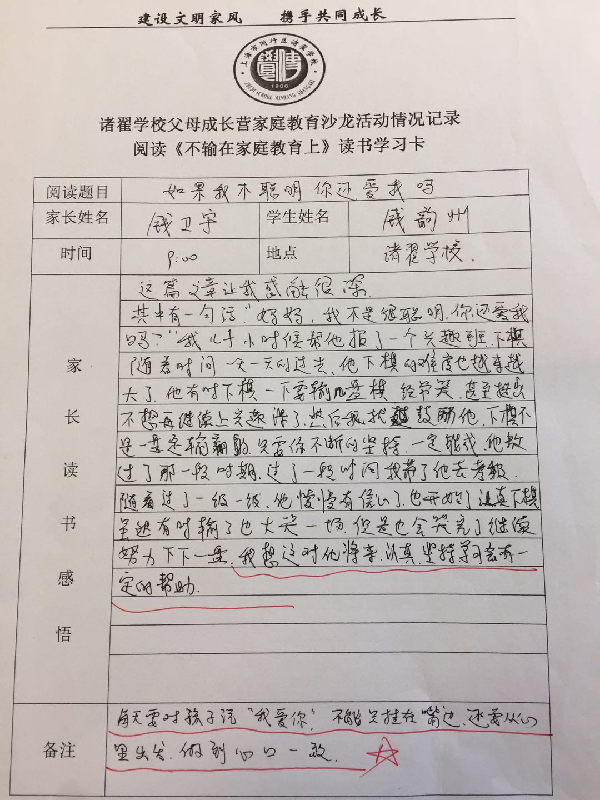 建设文明家风 携手共同成长
上海市闵行区诸翟学校
1906
诸翟学校父母成长营家庭教育沙龙活动情况记录
阅读《不输在家庭教育上》读书学习卡
阅读题目 如果我不聪明你还爱我吗
家长姓名 钱卫宇 学生姓名 钱韵州
时间 9:00 地点 诸翟学校.
家长读书感悟
这篇文章让我感触很深.
其中有一句话"妈妈,我不是很聪明,你还爱我
吗?"我儿子小时候帮他报了一个兴趣班,下棋
随着时间一天一天的过去,他下棋的难度也越来越
大了,他有时下棋一下要输几盘棋 经常哭,甚至提出
不想再继续上兴趣课了.然后我就鼓励他,下棋不
是一直是输,只要你不断的坚持一定能
过了那一段时期.过了一段时间我带了他去考级.
随着过了一级一级,他慢慢有信心了,也开始了认真下棋
虽然有时输了也大哭一场,但是也会哭完了继续
努力下下一盘,我想这对他将来,认真,坚持学习会有一
定的帮助.
备注
每天要对孩子说"我爱你",不能只挂在嘴边,还要从心
里出发,做到心口一致.